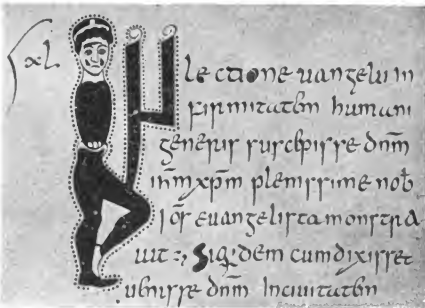 IN lectione uangelii in
firmitatem humani
generis suscepisse dnm̄
ihm̄ xpm̄ plenissime nob̄
euangelista monstra
uit :, Siqidem cum dixisset
uenisse dnm̄ In ciuitatem